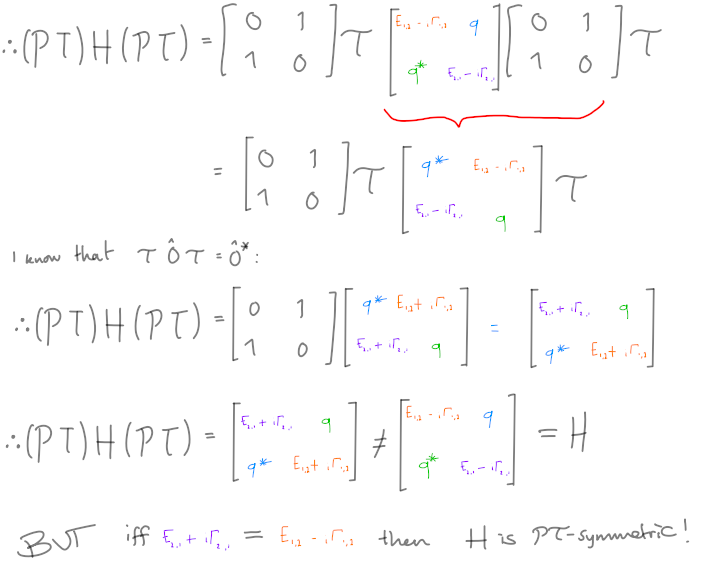 ∴ (PT) H (PT) = [0 1; 1 0] T [E₁,₂ - iΓ₁,₂ q; q* E₂,₁ - iΓ₂,₁] [0 1; 1 0] T
= [0 1; 1 0] T [q* E₁,₂ - iΓ₁,₂; E₂,₁ - iΓ₂,₁ q] T
I know that T Ô T = Ô*:
∴ (PT) H (PT) = [0 1; 1 0] [q* E₁,₂ + iΓ₁,₂; E₂,₁ + iΓ₂,₁ q] = [E₂,₁ + iΓ₂,₁ q; q* E₁,₂ + iΓ₁,₂]
∴ (PT) H (PT) = [E₂,₁ + iΓ₂,₁ q; q* E₁,₂ + iΓ₁,₂] ≠ [E₁,₂ - iΓ₁,₂ q; q* E₂,₁ - iΓ₂,₁] = H
BUT iff E₂,₁ + iΓ₂,₁ = E₁,₂ - iΓ₁,₂ then H is PT-symmetric!